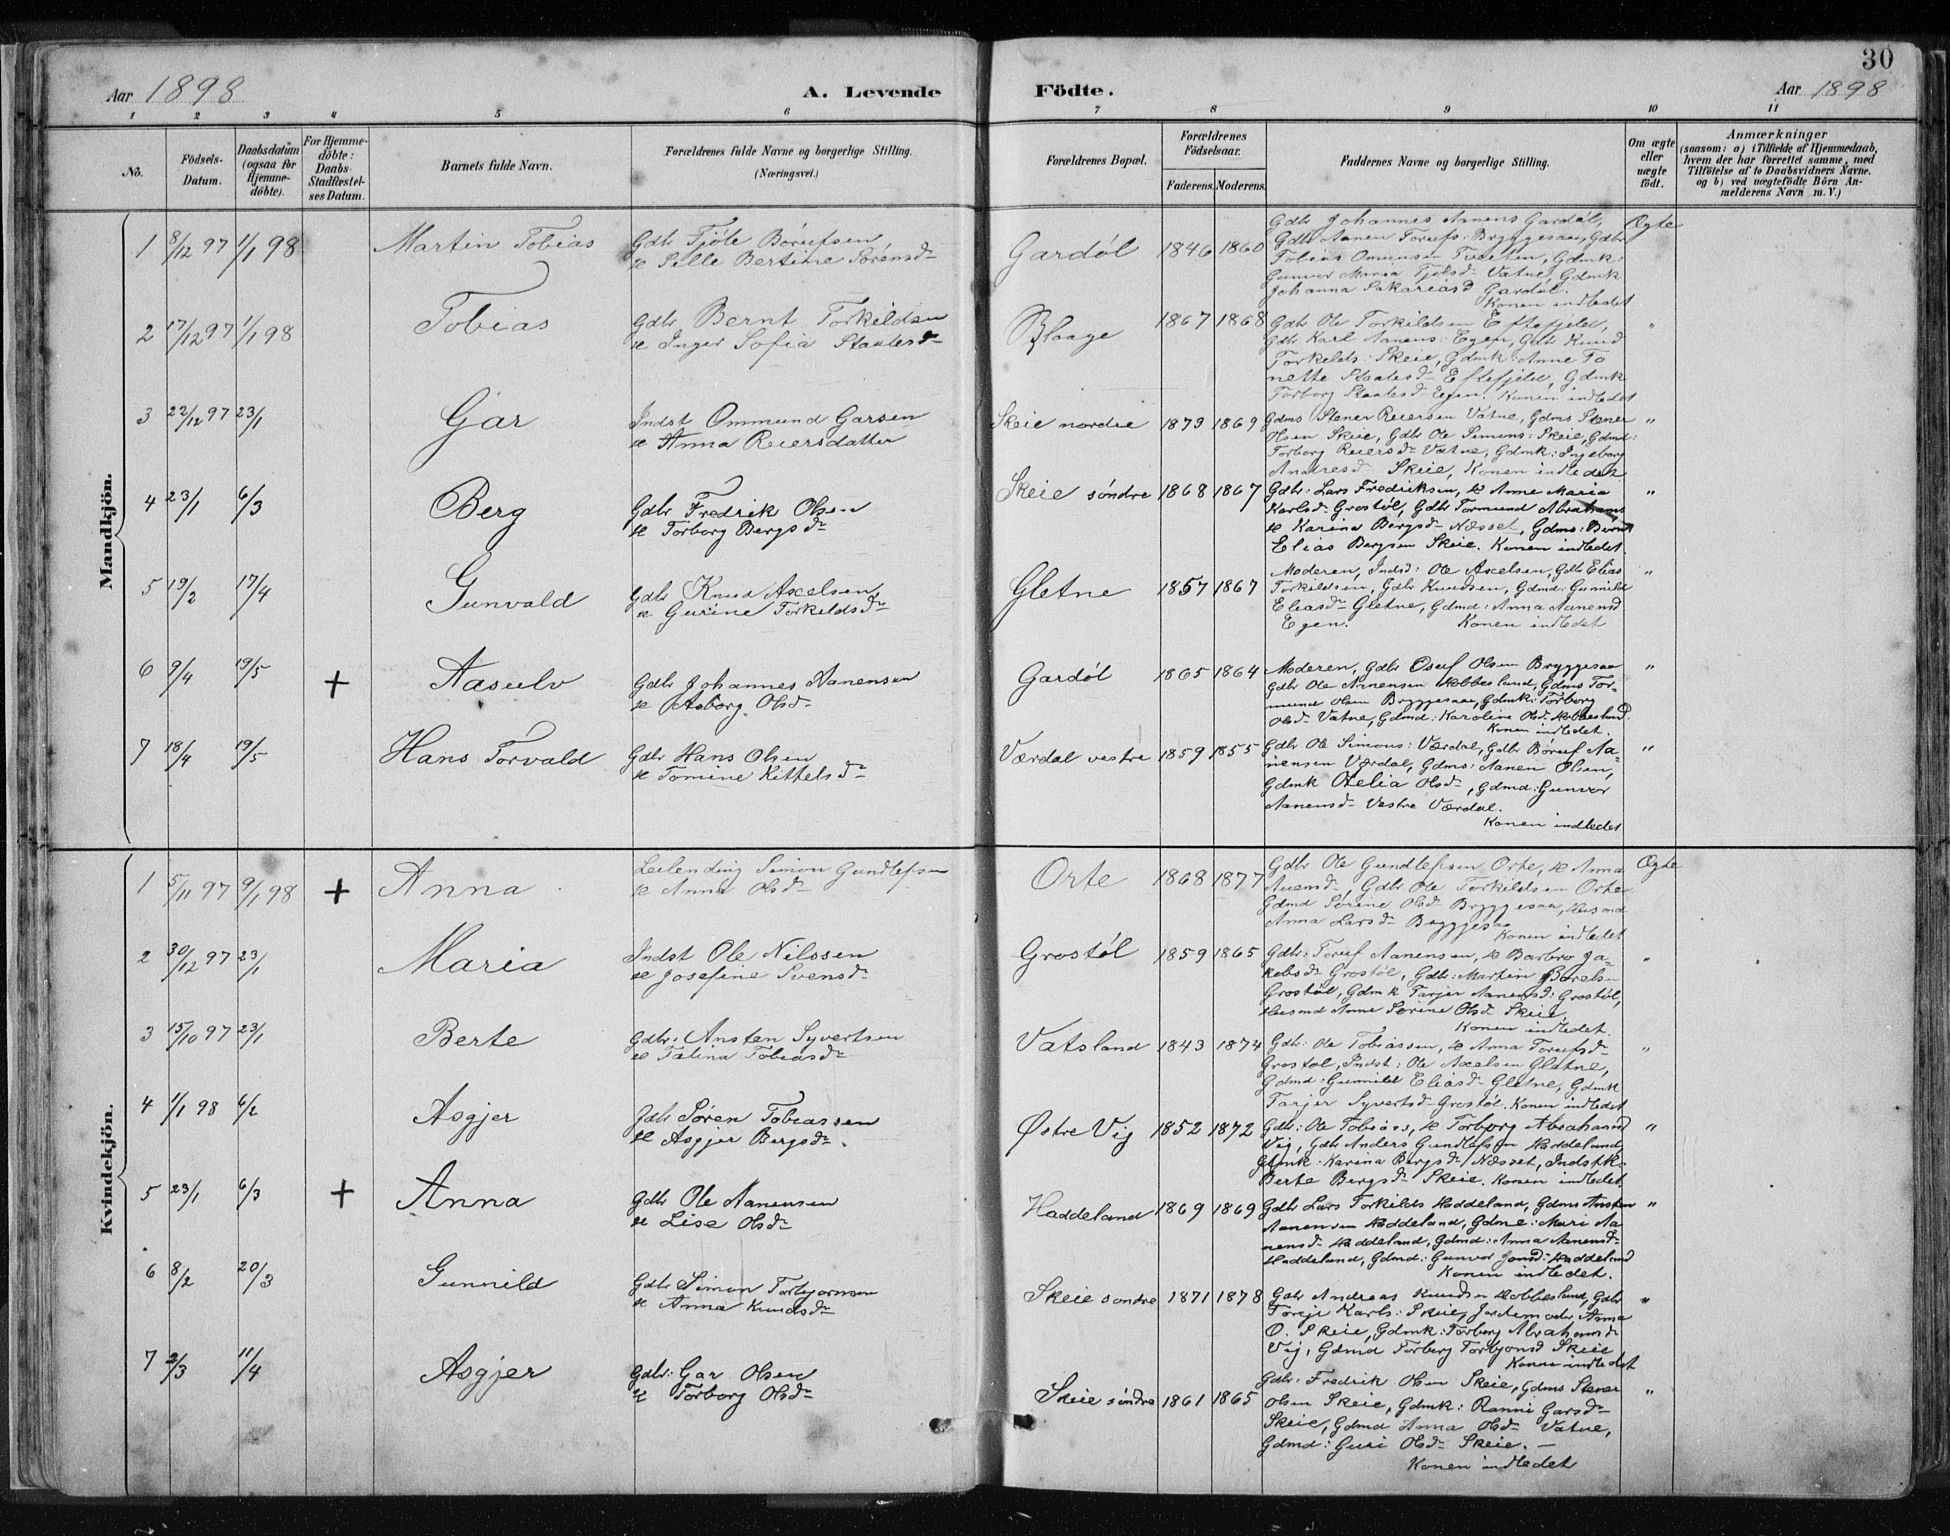 30
Aar 1898 A. Levende Födte. Aar 1898
1 2 3 4 5 6 7 8 9 10 11
No.
Födsels-Datum.
Daabsdatum (ogsaa for Hjemme-döbte).
For Hjemme-döbte: Daabs-Stadfæstel-ses Datum.
Barnets fulde Navn.
Forældrenes fulde Navne og borgerlige Stilling.
(Næringsvei.)
Forældrenes Bopæl.
Forældrenes Födselsaar.
Faderens. Moderens.
Faddernes Navne og borgerlige Stilling.
Om ægte eller uægte födt.
Anmærkninger
(saasom: a) i Tilfælde af Hjemmedaab,
hvem der har forrettet samme, med
Tilföielse af to Daabsvidners Navne.
og b) ved uægtefödte Börn An-
melderens Navn m. V.)
Mandkjön.
1 8/12 97 1/1 98 Martin Tobias
Gdbr Tjöle Börufsen
& Sille Bertine Sörensd
Gardöl 1846 1860
Gdbr Johannes Aanens Gardöl,
Gdbr Aanen Torufs: Bryggesaa, Gdbr
Tobias Omunsen Tveiten, Gdmk:
Gunvor Maria Tjöls d Vatne, Gdmk
Johanna Sakarias d Gardöl.
Konen indledet
Ægte
2 17/12 97 1/1 98 Tobias
Gdbr Bernt Torkildsen
& Inger Sofia Staalesd
1867 1868
Gdbr Ole Torkildsen Eftefjeld,
Gdbr Karl Aanens: Egen, Gdbr Knud
Torkelds: Skeie, Gdmk: Anne To
nette Staalesd Eftefjeld, Gdmk
Torborg Staalesd Egen. Konen indledet
"
3 22/12 97 23/1 Gjar
Indst Ommund Garsen
& Anna Reiersdatter
Skeie nordre 1873 1869
Gdms Stener Reiersen Vatne, Gdms Stener
Olsen Skeie, Gdbr Ole Simons: Skeie, Gdmd:
Torborg Reiersd Vatne, Gdmk: Ingeborg
Andresd Skeie, Konen indledet
"
4 23/1 6/3 Berg
Gdbr Fredrik Olsen
& Torborg Bergsd
Skeie söndre 1868 1867
Gdbr: Lars Fredriksen, & Anne Maria
Karlsd Grostöl, Gdbr Tormund Abrahams
& Karina Bergsd Næsset, Gdms: Bernt
Elias Bergsen Skeie. Konen indledet.
"
5 19/2 17/4 Gunvald
Gdbr Knud Axelsen,
& Gurine Torkildsd
Gletne 1857 1867
Moderen, Indst: Ole Axelsen, Gdbr Elias
Torkildsen, Gdbr Knudsen, Gdmd: Gunild
Eliasd Gletne, Gdmd: Anna Aanensd
Egen. Konen indledet
"
6 9/4 19/5 + Aasulv
Gdbr Johannes Aanensen
& Aaborg Olsd
Gardöl 1865 1864
Moderen, Gdbr Osuf Olsen Bryggesaa
Gdbr Ole Aanensen Hobbesland, Gdms Tor-
mund Olsen Bryggesaa, Gdmk: Torborg
Olsd Vatne, Gdmd: Karoline Olsd Hobbesland.
Konen indledet.
"
7 18/4 19/5 Hans Torvald
Gdbr Hans Olsen
& Tomine Kittelsd
Værdal vestre 1859 1855
Gdbr Ole Simons: Værdal, Gdbr Böruf Aa-
nensen Værdal, Gdms: Aanen Olsen,
Gdmk Otelia Olsd, Gdmd: Gunvor
Aanensd Vestre Værdal.
Konen indledet
"
Kvindekjön.
1 5/11 97 9/1 98 + Anna
Leilending Simon Gundlefsen
& Anna Olsd
Orte 1868 1877
Gdbr Ole Gundlefsen Orte, & Anna
Auensd, Gdbr Ole Torkildsen Orte
Gdmd Serine Olsd Bryggesaa, Husmd
Anna Larsd Bryggesaa
Konen indledet
Ægte
2 30/12 97 23/1 Maria
Indst Ole Nilssen
& Josefine Svensd
Grostöl 1859 1865
Gdbr: Toruf Aanensen, & Barbro Ja-
kobsd Grostöl, Gdbr: Martin
Grostöl, Gdmk Tarjer Aanensd: Grostöl,
Husmd Anne Serine Olsd Skeie,
Konen indledet.
"
3 15/10 97 23/1 Berte
Gdbr: Ansten Syvertsen
& Talina Tobiasd
Vatsland 1843 1874
Gdbr: Ole Tobiassen, & Anna Torufsd
Grostöl, Indst: Ole Axelsen Gletne,
Gdmd: Gunnild Eliasd Gletne, Gdmk
Tarjer Syvertsd Grostöl. Konen indledet
"
4 1/1 98 6/2 Asgjer
Gdbr Sören Tobiassen
& Asgjer Bergsd.
Östre Vig 1852 1872
Gdbr: Ole Tobiass, & Torborg Abrahamsd
Vig, Gdbr Anders Gundlefsen Haddeland,
Gdmk: Karina Bergsd Næsset, Indstk:
Berte Bergsd Skeie. Konen indledet
"
5 23/1 6/3 + Anna
Gdbr Ole Aanensen
& Lise Olsd
Haddeland 1869 1869
Gdbr Lars Torkilds Haddeland, Gdms Ansten
Aanensen Haddeland, Gdme: Mari Aa-
nensd Haddeland, Gdmd: Anna Aanensd
Haddeland, Gdmd: Gunvor Jonsd Haddeland
Konen indledet.
"
6 8/2 20/3 Gunnild
Gdbr Simon Torbjornsen
& Anna Knudsd
Skeie søndre 1871 1878
Gdbr Andreas Knudsen Hobbesland, Gdbr
Toreje Karls: Skeie, Jordemoder Anna
O. Skeie, Gdmk: Torborg Abrahamsd
Vig, Gdmd Torberg Torbjonsd Skeie
Konen indledet
"
7 2/3 11/4 Asgjer
Gdbr: Gar Olsen
& Torborg Olsd
Skeie søndre 1861 1865
Gdbr: Fredrik Olsen Skeie, Gdms Stener
Olsen Skeie, Gdmk: Ranni Garsd
Skeie, Gdmd Anna Olsd Vatne,
Gdmd: Guri Olsd Skeie. —
Konen indledet
"